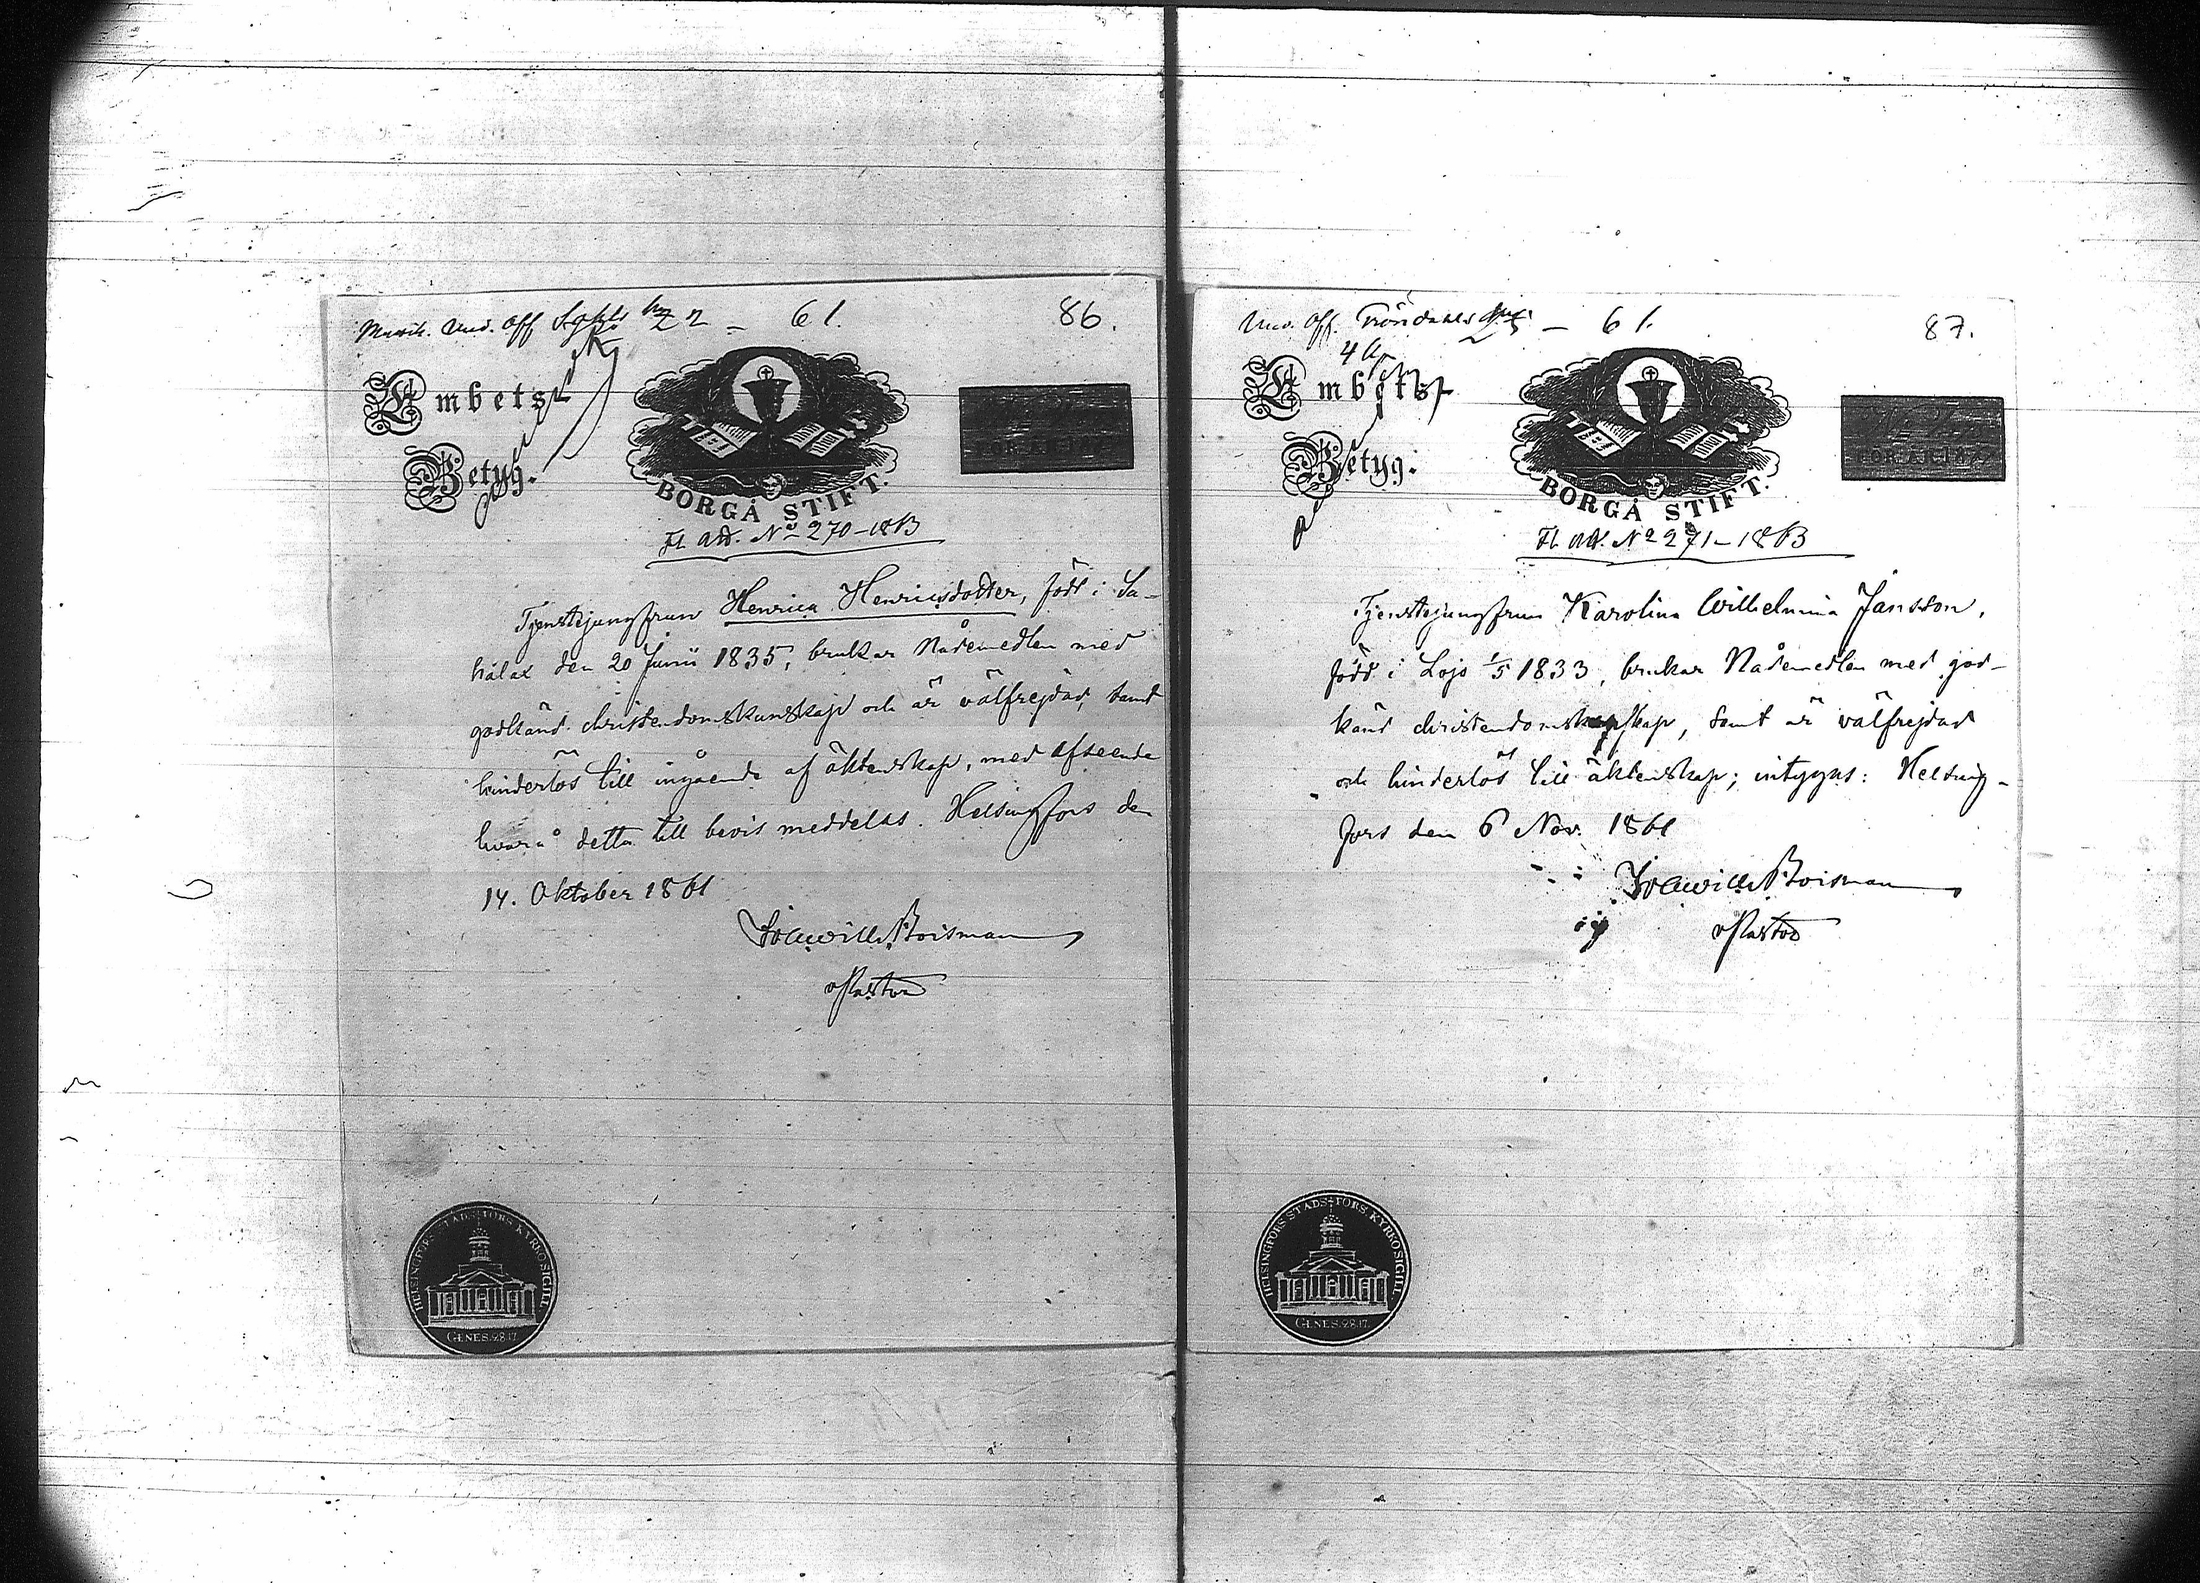 Musik. Und. Off 22 – 61.
86.
Embets-
Betyg.
BORGÅ STIFT.
Fl. Ad. No 270–1863
Tjenstejungfrun Henrica Henricsdotter, född i Sa-
halax den 20 Junii 1835, brukar Nådemedlen med
godkänd christendomskunskap och är välfrejdad, samt
hinderlös till ingående af äktenskap, med afseende
hvarå detta till bevis meddelas. Helsingfors den
14. Oktober 1861
Boisman
Pastor
HELSINGFORS STADS-FÖRS. KYRKOSIGILL.
GENES. 28.17.
Und. Off. – 61.
87.
Embets-
Betyg.
BORGÅ STIFT.
Fl. Ad. No 271–1863
Tjenstejungfrun Karolina Wilhelmina Jansson,
född i Lojo 1/5 1833, brukar Nådemedlen med god-
känd christendomskskap, samt är välfrejdad
och hinderlös till äktenskap; intygas: Helsing-
fors den 6 Nov. 1861
Boisman
Pastor
HELSINGFORS STADS-FÖRS. KYRKOSIGILL.
GENES. 28.17.